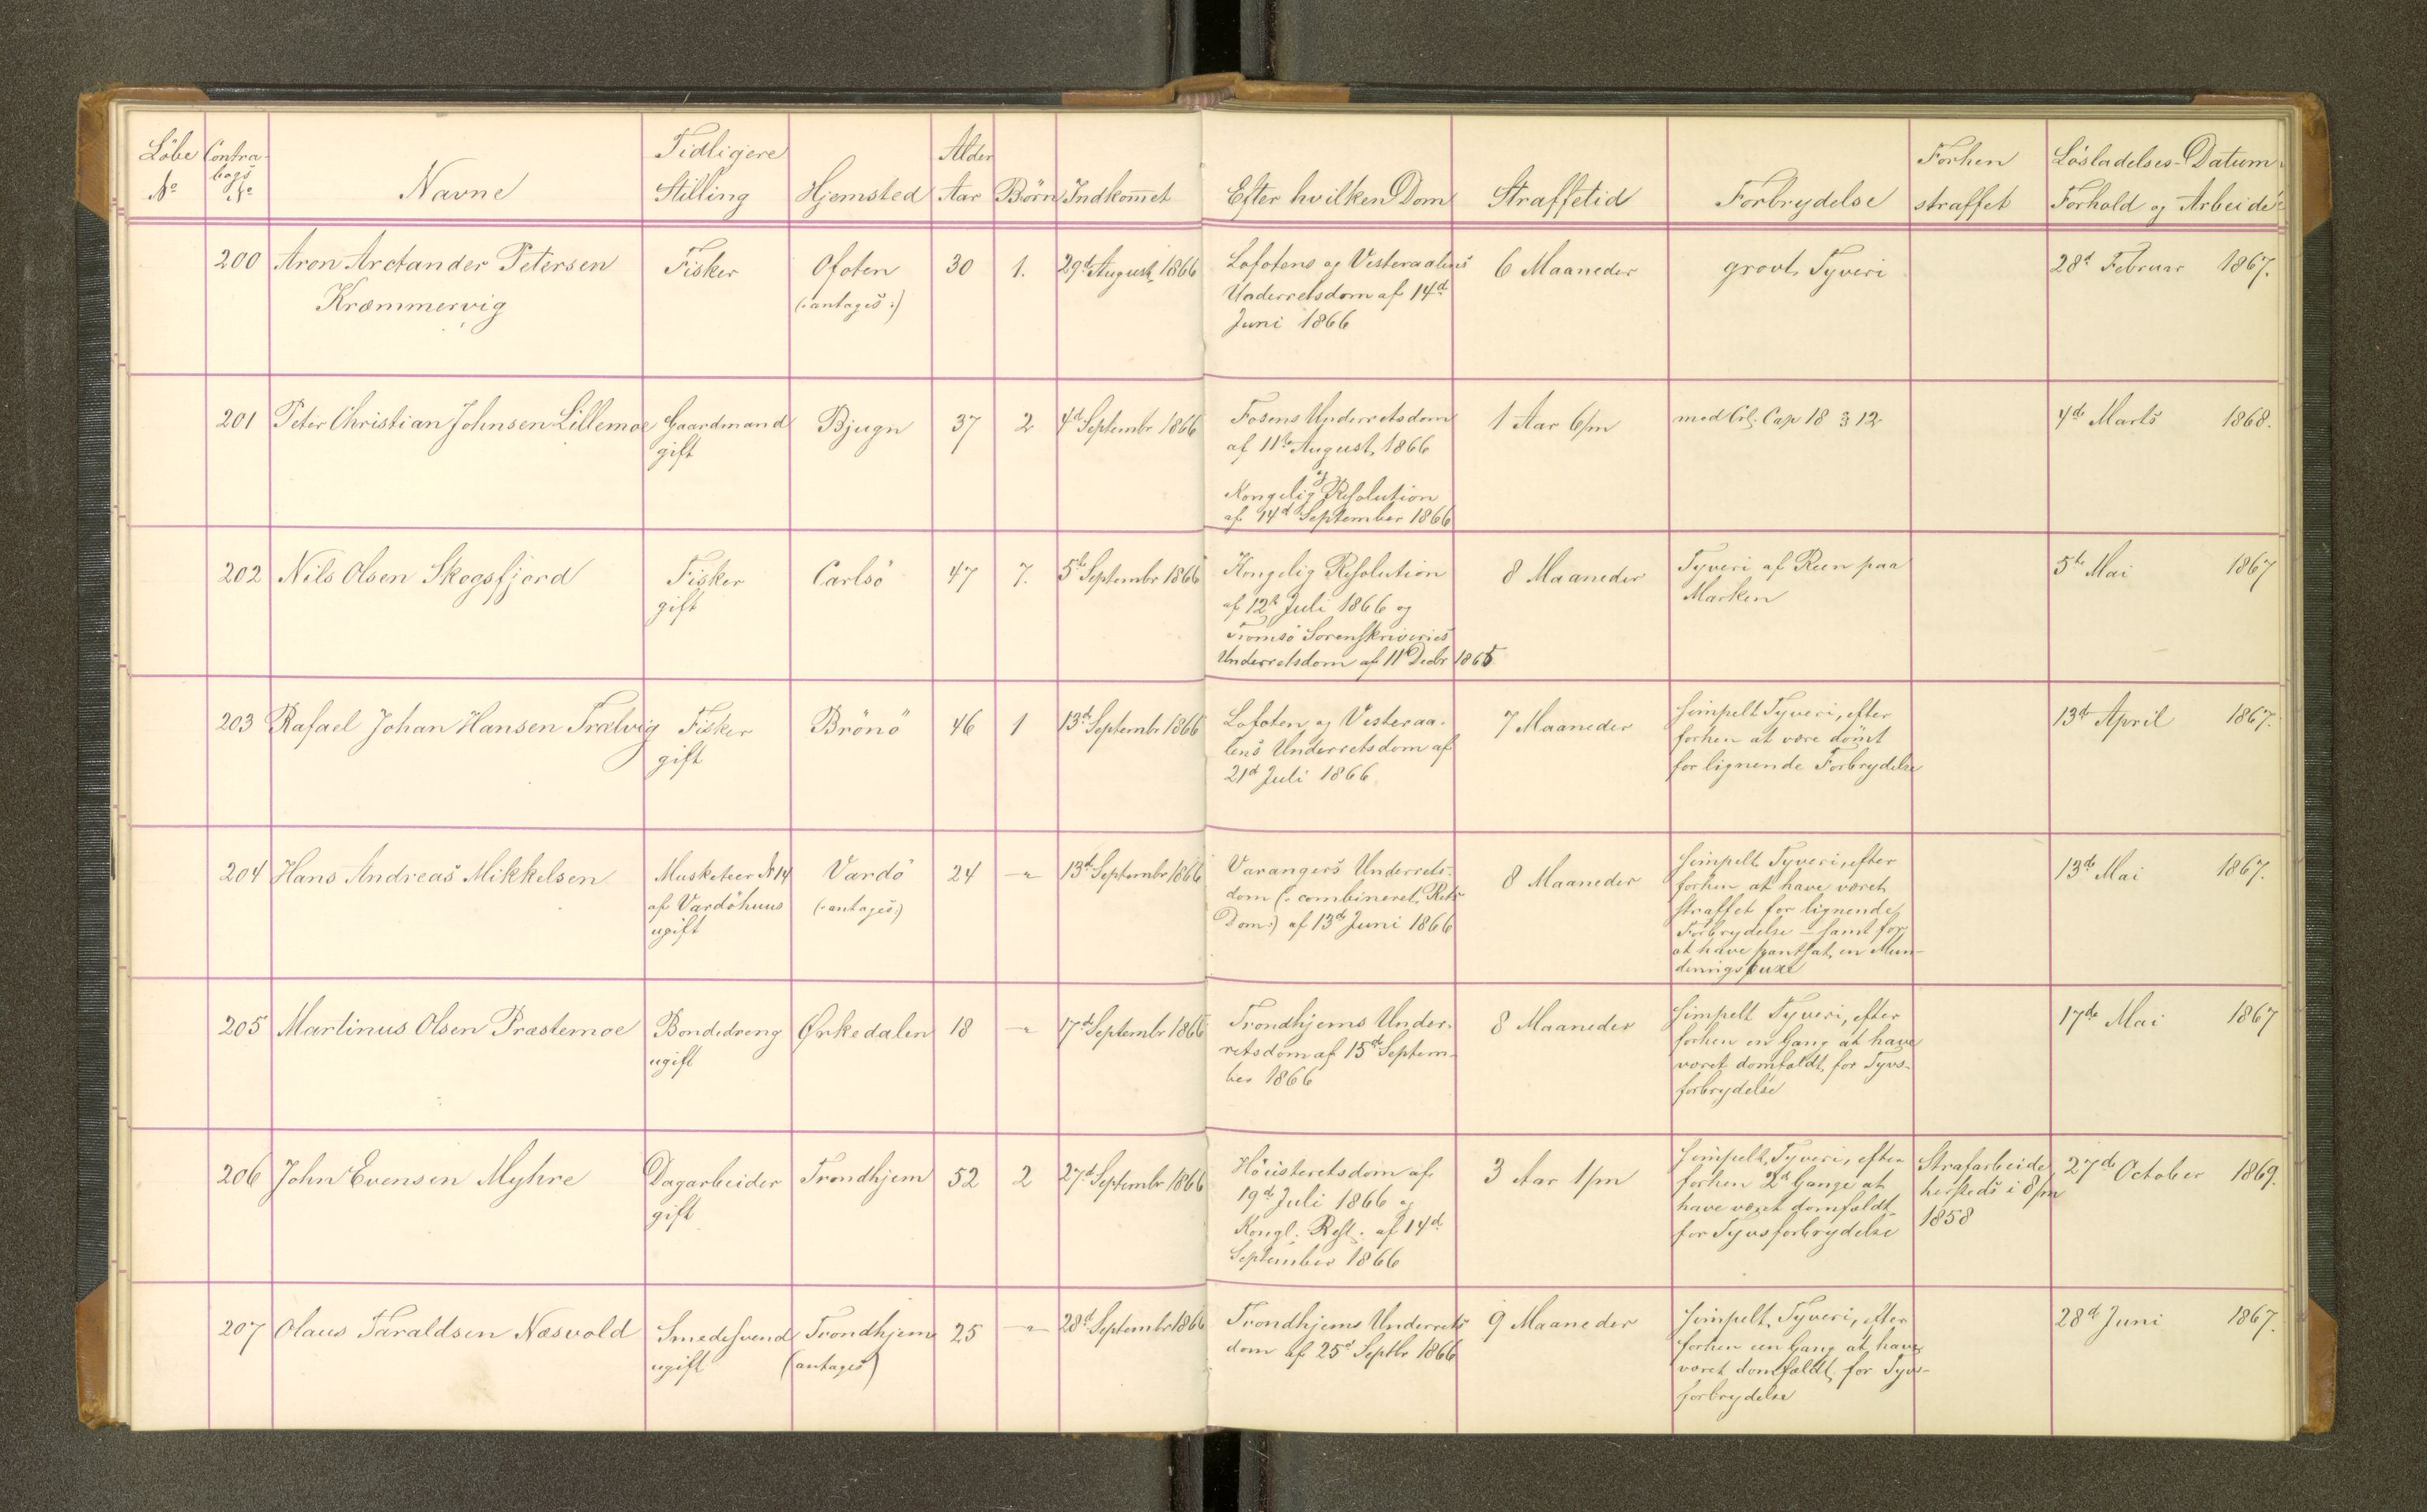 Löbe No
Contra-bogs No
Navne
Tidligere Stilling
Hjemsted
Alder Aar
Börn
Indkom̅et
Efter hvilken Dom
Straffetid
Forbrydelse
Forhen straffet
Lösladelses-Datum
Forhold og Arbeide
200 Aron Arctander Petersen
Kræmmervig
Fisker
Ofoten
(:antages:)
30
1.
29d August 1866
Lofotens og Vesteraalens
Underretsdom af 14d
Juni 1866
6 Maaneder
grovt Tyveri
28d Februar 1867.
201 Peter Christian Johnsen Lillemoe
Gaardmand
gift
Bjugn
37
2
4d Septembr 1866
Fosens Underretsdom
af 11te August 1866
og
Kongelig Resolution
af 14d September 1866
1 Aar 6/m
med Crl. Cap 18 § 12
4de Marts 1868.
202 Nils Olsen Skogsfjord
Fisker
gift
Carlsö
47
7.
5te Septembr 1866
Kongelig Resolution
af 12te Juli 1866 og
Tromsö Sorenskriveries
Underretsdom af 11te Decbr 1865
8 Maaneder
Tyveri af Reen paa
Marken
5te Mai 1867
203 Rafael Johan Hansen Trælvig
Fisker
gift
Brönö
46
1
13d Septembr 1866
Lofoten og Vesteraa-
lens Underretsdom af
21d Juli 1866
7 Maaneder
simpelt Tyveri, efter
forhen at være dömt
for lignende Forbrydelse
13de April 1867.
204 Hans Andreas Mikkelsen
Musketeer No 14
af Vardöhuus
ugift
Vardö
(:antages:)
24
-"-
13d Septembr 1866
Varangers Underrets-
dom (: combineret Rets
Dom:) af 13d Juni 1866
8 Maaneder
simpelt Tyveri, efter
forhen at have været
straffet for lignende
Forbrydelse – samt for
at have pantsat en Mun-
deringsbuxe
13de Mai 1867.
205 Martinus Olsen Præstemoe
Bondedreng
ugift
Ørkedalen
18
-"-
17d Septembr 1866
Trondhjems Under-
retsdom af 15de Septem-
ber 1866
8 Maaneder
simpelt Tyveri, efter
forhen en Gang at have
været domfældt for Tyvs-
forbrydelse
17de Mai 1867
206 John Evensen Myhre
Dagarbeider
gift
Trondhjem
52
2
27d Septembr 1866
Höiesteretsdom af
19d Juli 1866 og
Kongl. Resl. af 14d
September 1866
3 Aar 1/m
simpelt Tyveri, efter
forhen 2d Gange at
have været domfældt
for Tyvsforbrydelse
Strafarbeide
hersteds i 8/m
1858
27de October 1869.
207 Olaus Taraldsen Næsvold
Smedesvend
ugift
Trondhjem
(antages)
25
-"-
28d Septembr 1866
Trondhjems Underrets
dom af 25d Septbr 1866
9 Maaneder
simpelt Tyveri, efter
forhen een Gang at have
været domfældt for Tyvs-
forbrydelse
28d Juni 1867.